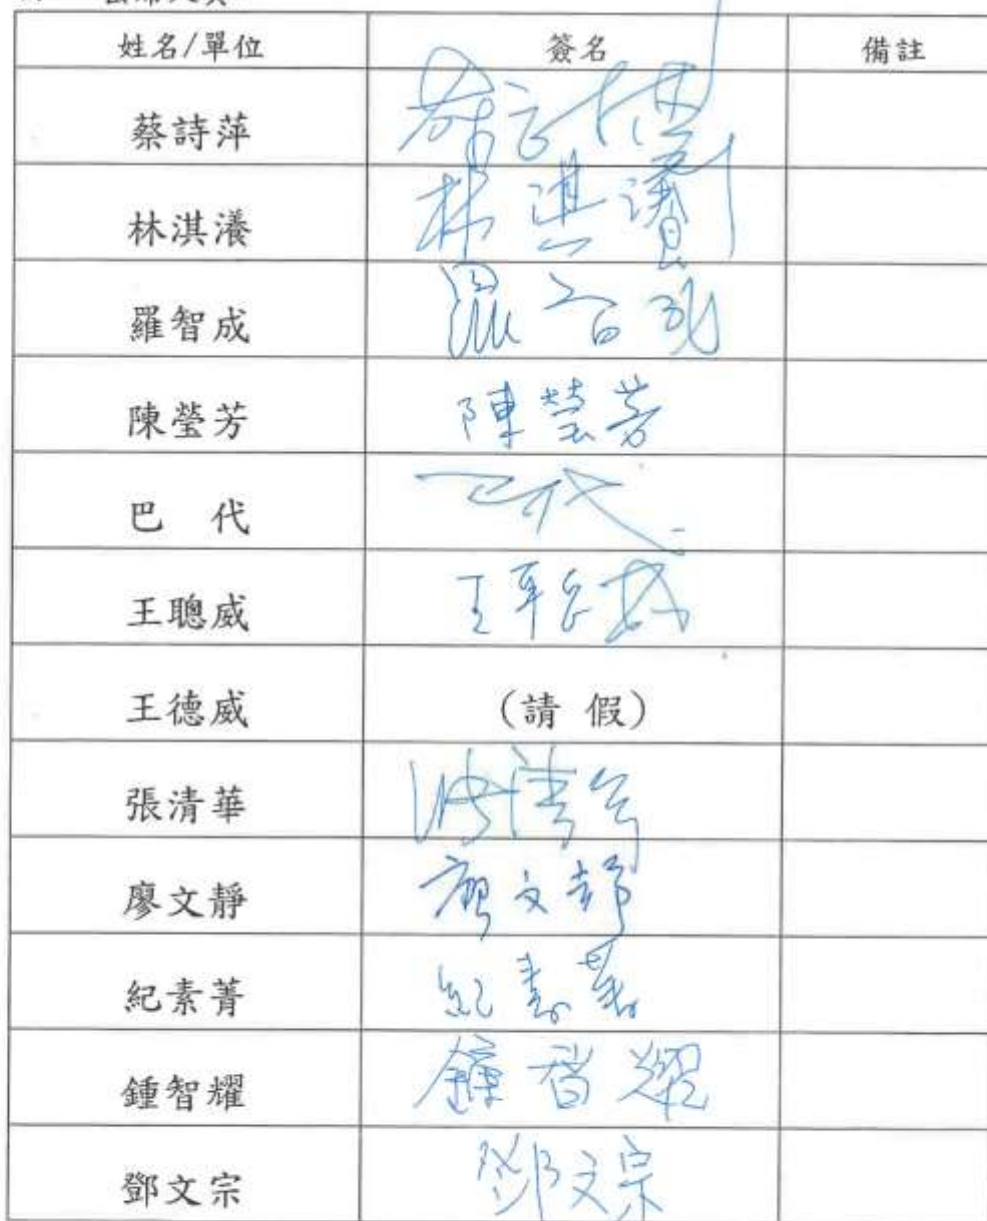 姓名/單位 簽名 備註
蔡詩萍
林淇瀁 林淇瀁
羅智成 羅智成
陳瑩芳 陳瑩芳
巴 代 巴代
王聰威 王聰威
王德威 (請 假)
張清華 張清華
廖文靜 廖文靜
紀素菁 紀素菁
鍾智耀 鍾智耀
鄧文宗 鄧文宗